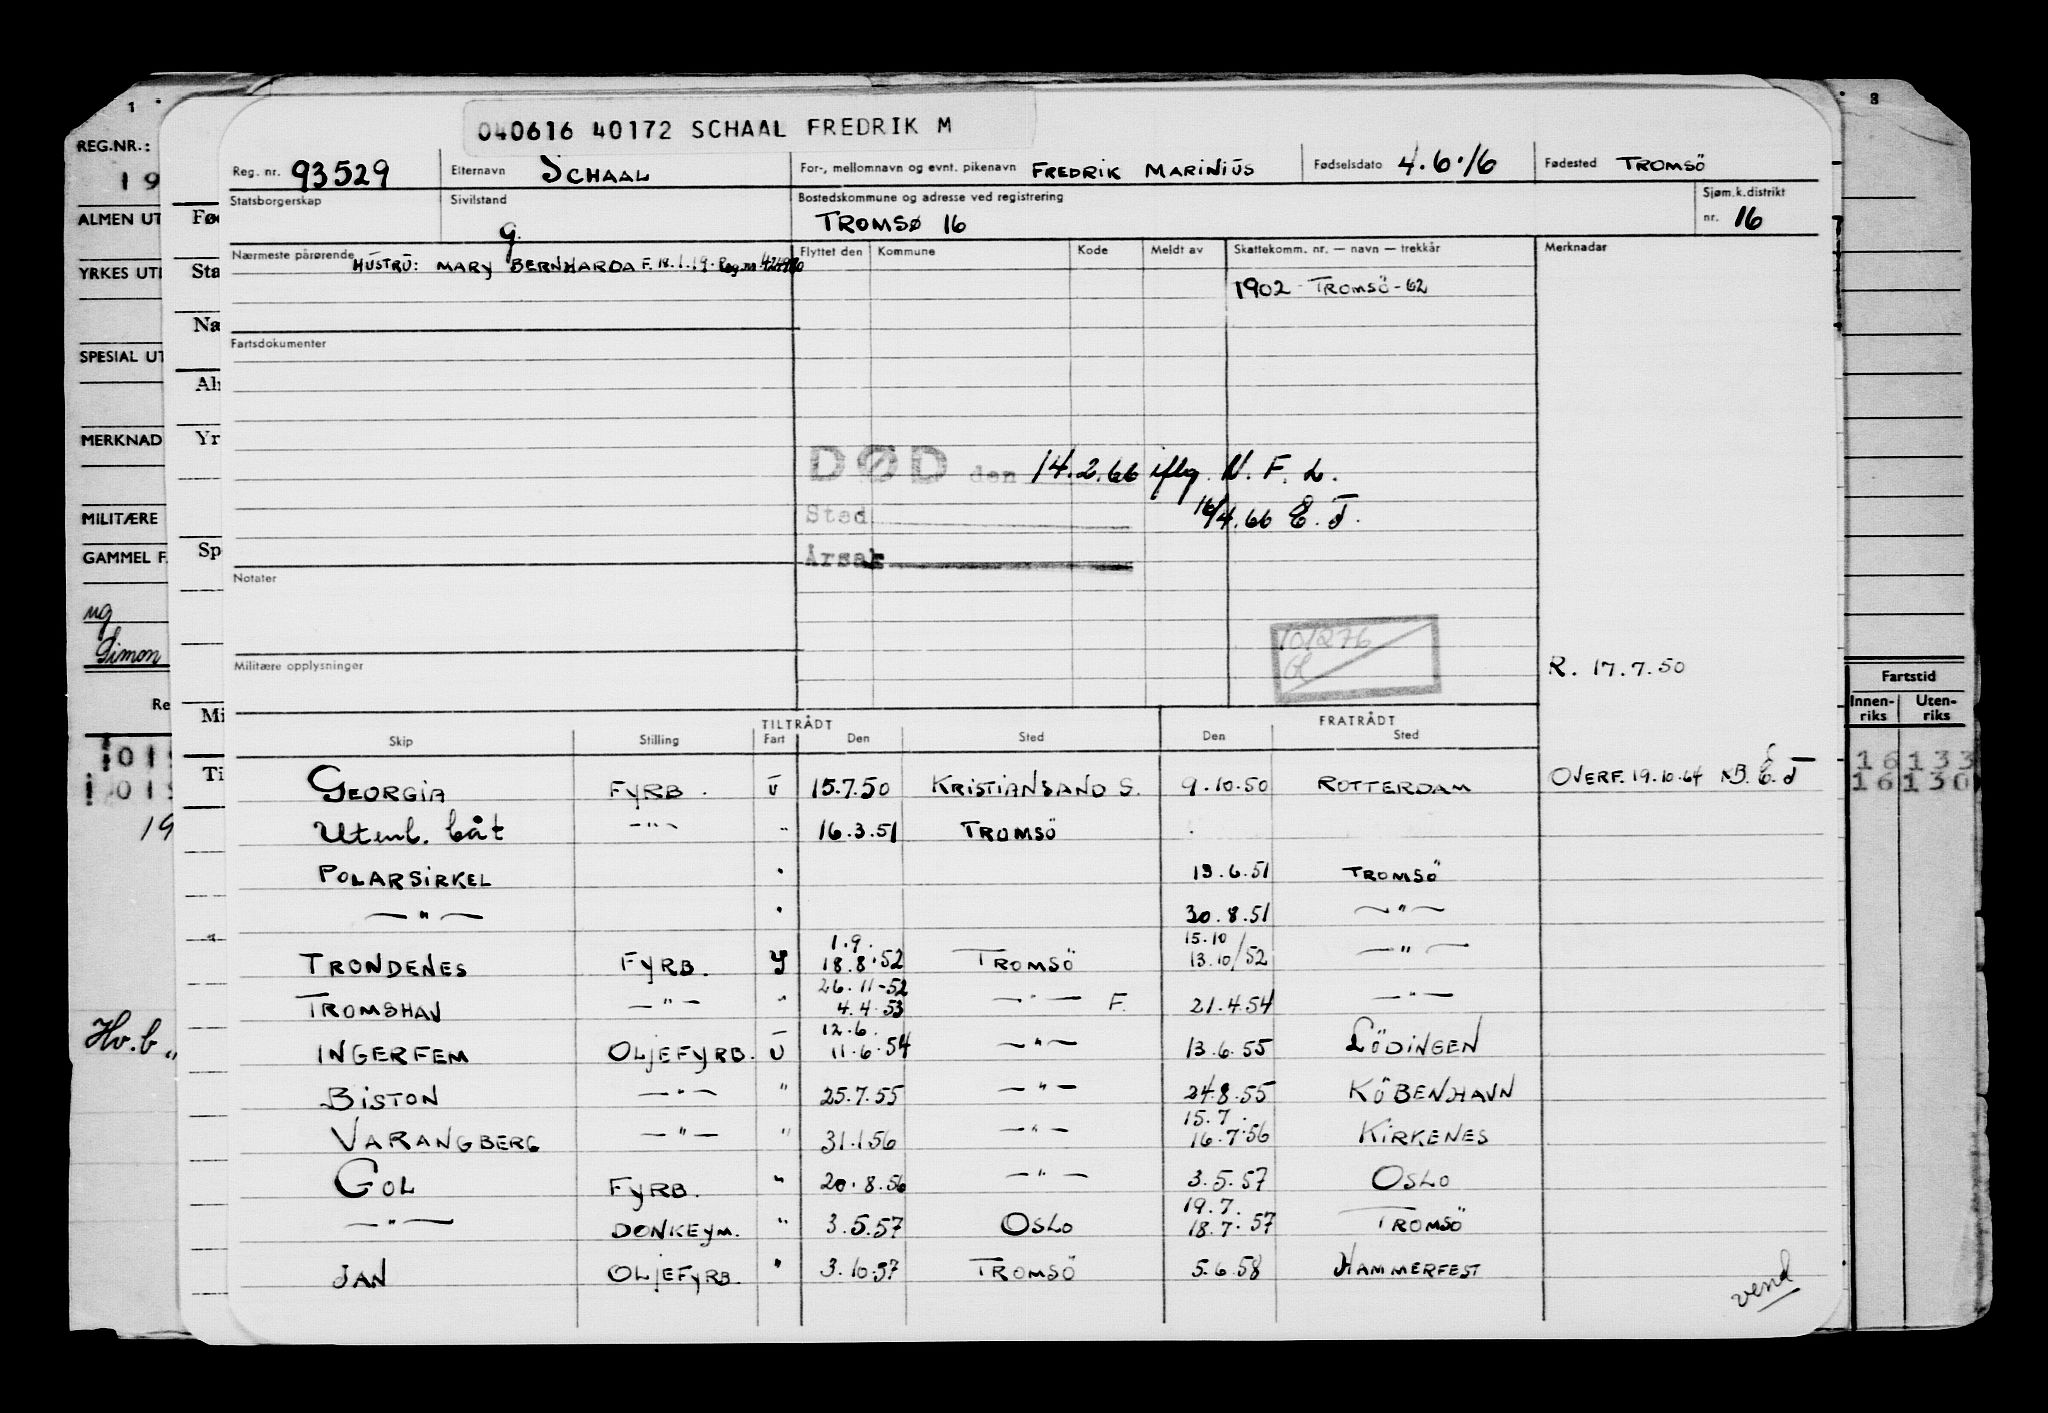 040616 40172 SCHAAL FREDRIK M
Reg. nr. 93529 Etternavn SCHAAL For-, mellomnavn og evnt. pikenavn FREDRIK MARINIUS Fødselsdato 4.6.16 Fødested TROMSÖ
Statsborgerskap Sivilstand G. Bostedskommune og adresse ved registrering TROMSØ 16 Sjøm.k.distrikt nr. 16
Nærmeste pårørende HUSTRU: MARY BERNHARDA F. 18.1.19. Reg.nr Flyttet den Kommune Kode Meldt av Skattekomm. nr. — navn — trekkår Merknadar
1902 - TROMSÖ - 62
Fartsdokumenter
DØD den 14.2.66 iflg. N. F. L.
Sted 16/4.66 E. J.
Årsak
Notater
101276
Militære opplysninger R. 17.7.50
TILTRÅDT FRATRÅDT
Skip Stilling Fart Den Sted Den Sted
GEORGIA FYRB. U 15.7.50 KRISTIANSAND S. 9.10.50 ROTTERDAM OVERF. 19.10.64
Utenl. båt —"— " 16.3.51 TROMSÖ
POLARSIRKEL " 13.6.51 TROMSÖ
—"— " 30.8.51 —"—
1.9. 15.10
TRONDENES FYRB. 18.8.52 TROMSÖ 13.10/52 —"—
26.11-52
TROMSHAV —"— " 4.4.53 —"— F. 21.4.54 —"—
12.6.
INGERFEM OLJEFYRB. U 11.6.54 —"— 13.6.55 LÖDINGEN
BISTON —"— " 25.7.55 —"— 24.8.55 KÖBENHAVN
15.7.
VARANGBERG —"— " 31.1.56 —"— 16.7.56 KIRKENES
GOL FYRB. " 20.8.56 —"— 3.5.57 OSLO
19.7.
—"— DONKEYM. " 3.5.57 OSLO 18.7.57 TROMSÖ
JAN OLJEFYRB. " 3.10.57 TROMSÖ 5.6.58 HAMMERFEST
vend
1
REG.NR.:
19
ALMEN UT
YRKES UT
SPESIAL UT
MERKNAD
MILITÆRE
GAMMEL F.
ug
Simon
Re
019
019
19
Hv.b „
Fød
Sta
Næ
Alm
Yr
Sp
Mi
Ti
3
Fartstid
Innen-riks Uten-riks
16 133
16 130